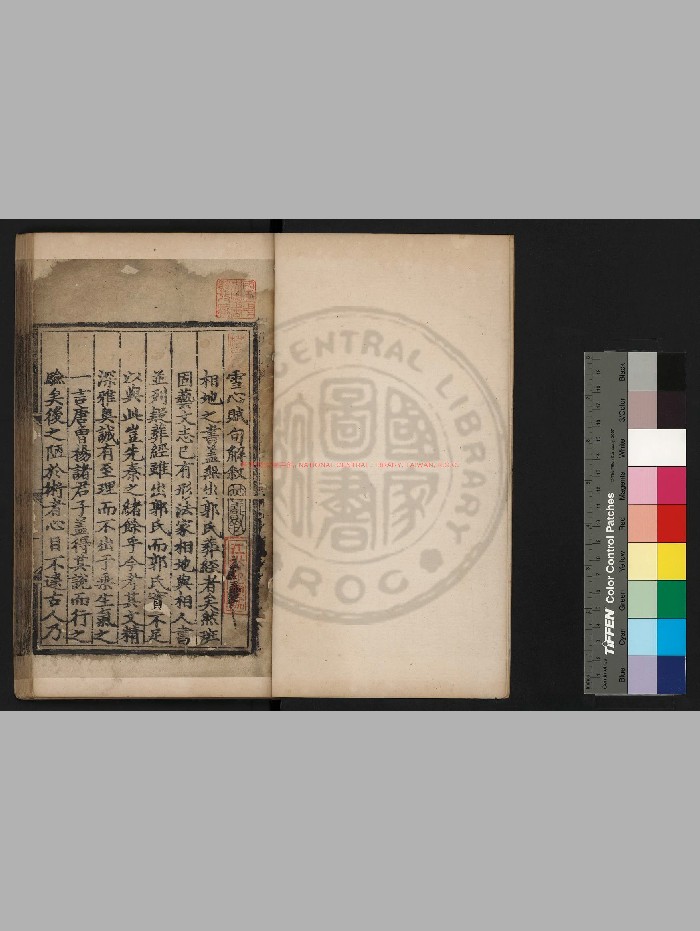 雪心賦句解敘
相地之書蓋無出郭氏葬經者矣然班
固藝文志已有形法家相地與相人書
並列疑葬經雖出郭氏而郭氏實不足
以與此豈先秦之緒餘乎今考其文精
深雅奧誠有至理而不出乎乘生氣之
一言唐曾楊諸君子蓋得其說而行之
驗矣後之陋於術者心目不逮古人乃
國家圖書館
NATIONAL CENTRAL LIBRARY, TAIWAN, R.O.C
CENTRAL LIBRARY
ROC
TIFFEN Color Control Patches
Blue
Cyan
Green
Yellow
Red
Magenta
White
3/Color
Black